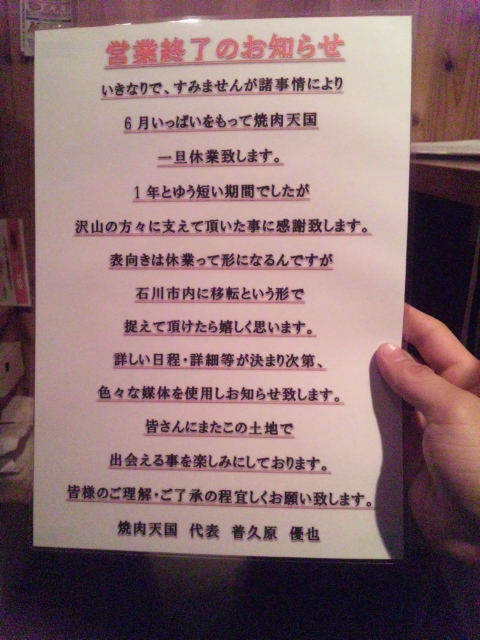 営業終了のお知らせ
いきなりで、すみませんが諸事情により
6月いっぱいをもって焼肉天国
一旦休業致します。
1年とゆう短い期間でしたが
沢山の方々に支えて頂いた事に感謝致します。
表向きは休業って形になるんですが
石川市内に移転という形で
捉えて頂けたら嬉しく思います。
詳しい日程・詳細等が決まり次第、
色々な媒体を使用しお知らせ致します。
皆さんにまたこの土地で
出会える事を楽しみにしております。
皆様のご理解・ご了承の程宜しくお願い致します。
焼肉天国 代表 普久原 優也